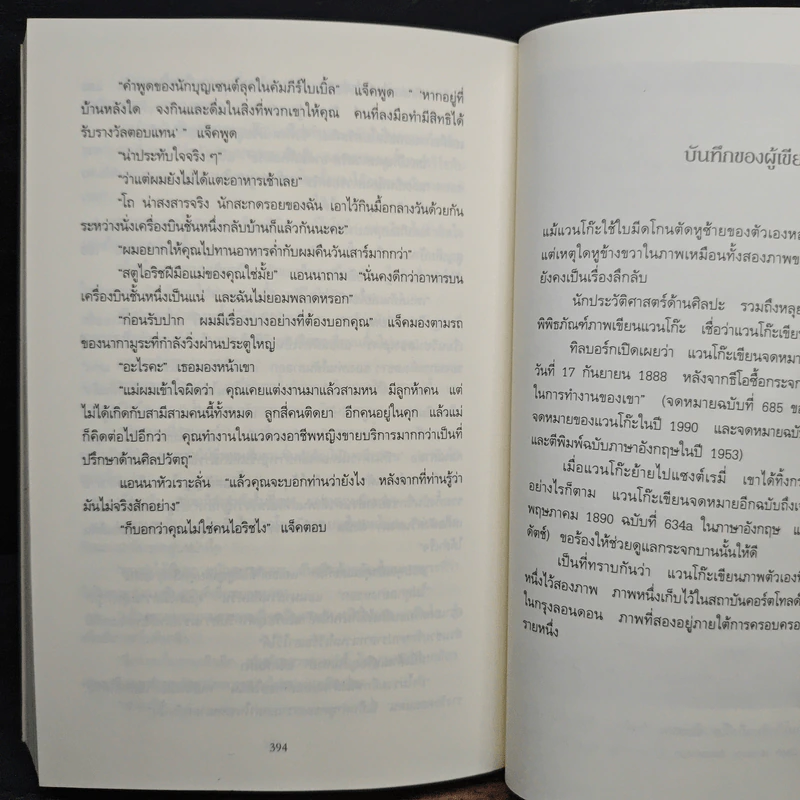 "คำพูดของนักบุญเซนต์ลุคในคัมภีร์ไบเบิ้ล" แจ็คพูด " 'หากอยู่ที่
บ้านหลังใด จงกินและดื่มในสิ่งที่พวกเขาให้คุณ คนที่ลงมือทำมีสิทธิได้
รับรางวัลตอบแทน' " แจ็คพูด
"น่าประทับใจจริง ๆ"
"ว่าแต่ผมยังไม่ได้แตะอาหารเช้าเลย"
"โถ น่าสงสารจริง นักสะกดรอยของฉัน เอาไว้กินมื้อกลางวันด้วยกัน
ระหว่างนั่งเครื่องบินชั้นหนึ่งกลับบ้านก็แล้วกันนะคะ"
"ผมอยากให้คุณไปทานอาหารค่ำกับผมคืนวันเสาร์มากกว่า"
"สตูไอริชฝีมือแม่ของคุณใช่มั้ย" แอนนาถาม "นั่นคงดีกว่าอาหารบน
เครื่องบินชั้นหนึ่งเป็นแน่ และฉันไม่ยอมพลาดหรอก"
"ก่อนรับปาก ผมมีเรื่องบางอย่างที่ต้องบอกคุณ" แจ็คมองตามรถ
ของนากามูระที่กำลังวิ่งผ่านประตูใหญ่
"อะไรคะ" เธอมองหน้าเขา
"แม่ผมเข้าใจผิดว่า คุณเคยแต่งงานมาแล้วสามหน มีลูกห้าคน แต่
ไม่ได้เกิดกับสามีสามคนนี้ทั้งหมด ลูกสี่คนติดยา อีกคนอยู่ในคุก แล้วแม่
ก็คิดต่อไปอีกว่า คุณทำงานในแวดวงอาชีพหญิงขายบริการมากกว่าเป็นที่
ปรึกษาด้านศิลปวัตถุ"
แอนนาหัวเราะลั่น "แล้วคุณจะบอกท่านว่ายังไง หลังจากที่ท่านรู้ว่า
มันไม่จริงสักอย่าง"
"ก็บอกว่าคุณไม่ใช่คนไอริชไง" แจ็คตอบ
394
บันทึกของผู้เขีย
แม้แวนโก๊ะใช้ใบมีดโกนตัดหูซ้ายของตัวเองหล
แต่เหตุใดหูข้างขวาในภาพเหมือนทั้งสองภาพข
ยังคงเป็นเรื่องลึกลับ
นักประวัติศาสตร์ด้านศิลปะ รวมถึงหลุย
พิพิธภัณฑ์ภาพเขียนแวนโก๊ะ เชื่อว่าแวนโก๊ะเขียน
ทิลบอร์กเปิดเผยว่า แวนโก๊ะเขียนจดหมา
วันที่ 17 กันยายน 1888 หลังจากธีโอซื้อกระจก
ในการทำงานของเขา" (จดหมายฉบับที่ 685 ขอ
จดหมายของแวนโก๊ะในปี 1990 และจดหมายฉบับ
และตีพิมพ์ฉบับภาษาอังกฤษในปี 1953)
เมื่อแวนโก๊ะย้ายไปแซงต์เรมี่ เขาได้ทิ้งกร
อย่างไรก็ตาม แวนโก๊ะเขียนจดหมายอีกฉบับถึงเ
พฤษภาคม 1890 ฉบับที่ 634a ในภาษาอังกฤษ แ
ดัตช์) ขอร้องให้ช่วยดูแลกระจกบานนั้นให้ดี
เป็นที่ทราบกันว่า แวนโก๊ะเขียนภาพตัวเองที
หนึ่งไว้สองภาพ ภาพหนึ่งเก็บไว้ในสถาบันคอร์ตโทลด์
ในกรุงลอนดอน ภาพที่สองอยู่ภายใต้การครอบครอ
รายหนึ่ง